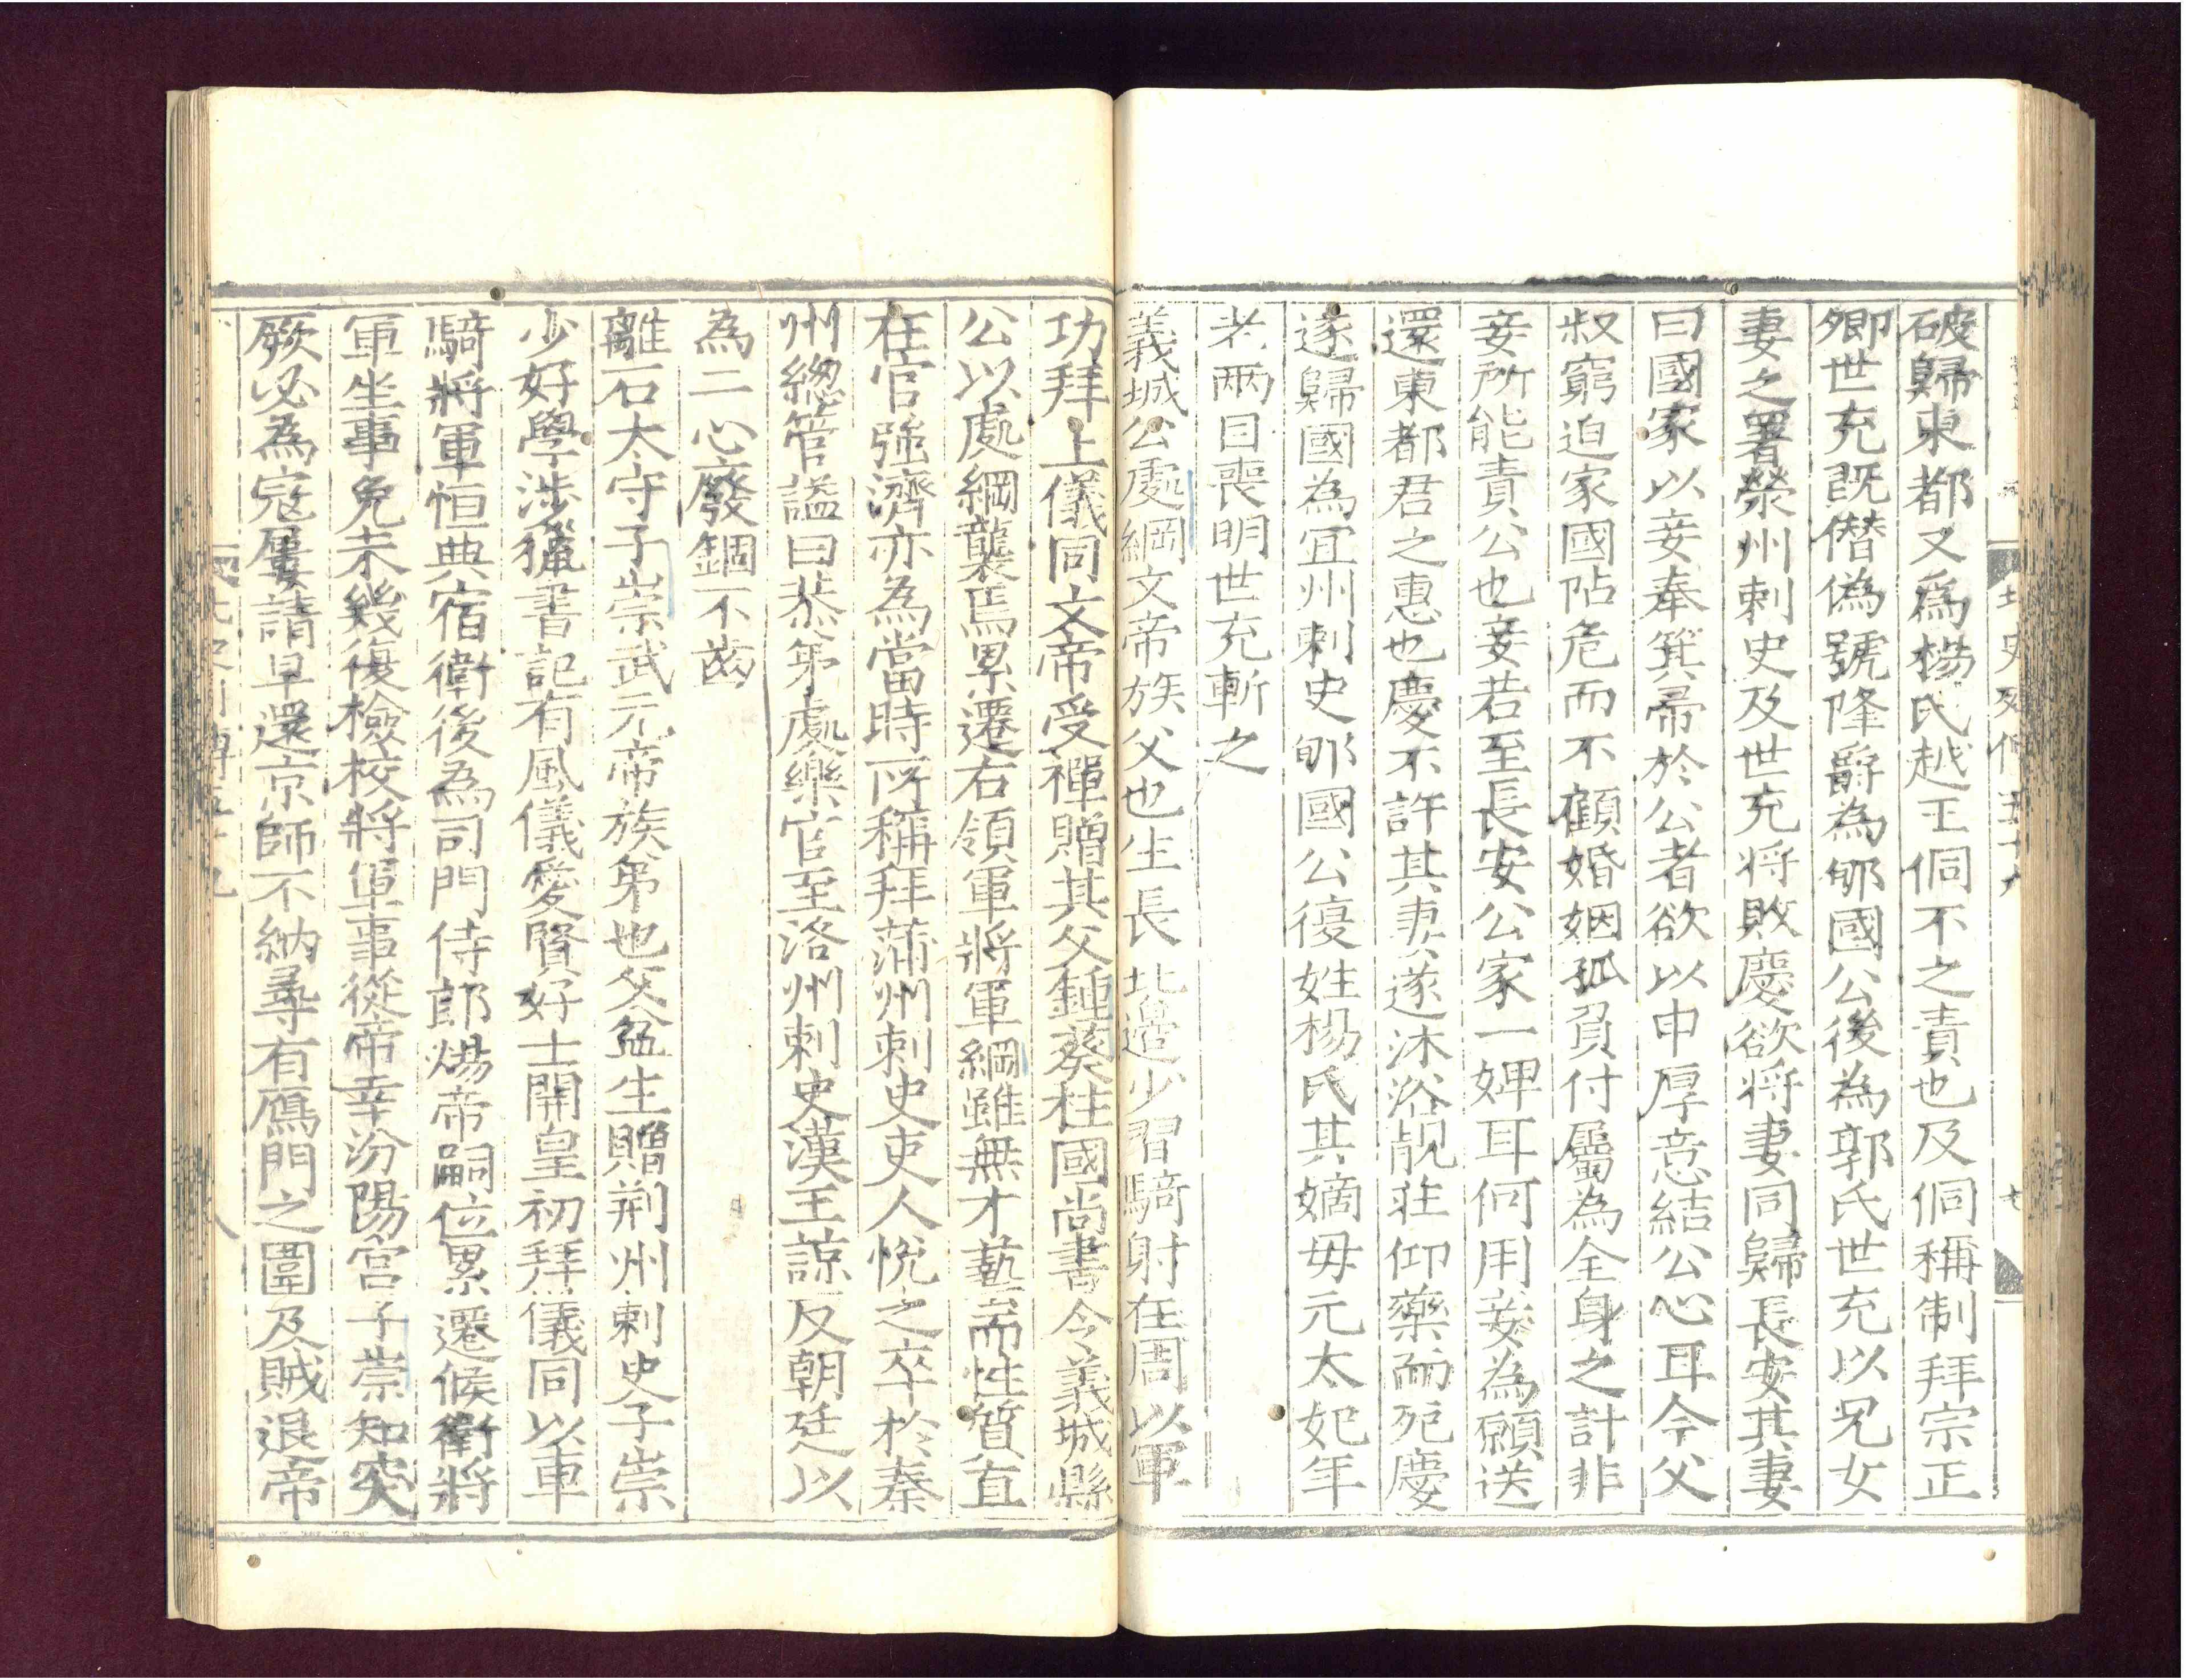 北史列傳五十九 七
破歸東都又爲楊氏越王侗不之責也及侗稱制拜宗正
卿世充既僭偽號降爵為郇國公後為郭氏世充以兄女
妻之署滎州刺史及世充将敗慶欲将妻同歸長安其妻
曰國家以妾奉箕帚於公者欲以申厚意結公心耳今父
叔窮迫家國阽危而不顧婚姻孤負付屬為全身之計非
妾所能責公也妾若至長安公家一婢耳何用妾為願送
還東都君之惠也慶不許其妻遂沐浴靚莊仰藥而死慶
遂歸國為宜州刺史郇國公復姓楊氏其嫡母元太妃年
老兩目喪明世充斬之
義城公處綱文帝族父也生長北邊少習騎射在周以軍
功拜上儀同文帝受禪贈其父鍾葵柱國尚書令義城縣
公以處綱襲焉累遷右領軍將軍綱雖無才藝而性質直
在官強濟亦為當時所稱拜蒲州刺史吏人悅之卒於秦
州緫管謚曰恭弟處樂官至洛州刺史漢王諒反朝廷以
為二心廢錮不齒
離石太守子崇武元帝族弟也父盆生贈荆州刺史子崇
少好學涉獵書記有風儀愛賢好士開皇初拜儀同以車
騎將軍恒典宿衛後為司門侍郎煬帝嗣位累遷候衛將
軍坐事免未幾復檢校將軍事從帝幸汾陽宮子崇知突
厥必為寇屢請早還京師不納尋有鴈門之圍及賊退帝
北史列傳五十九 八